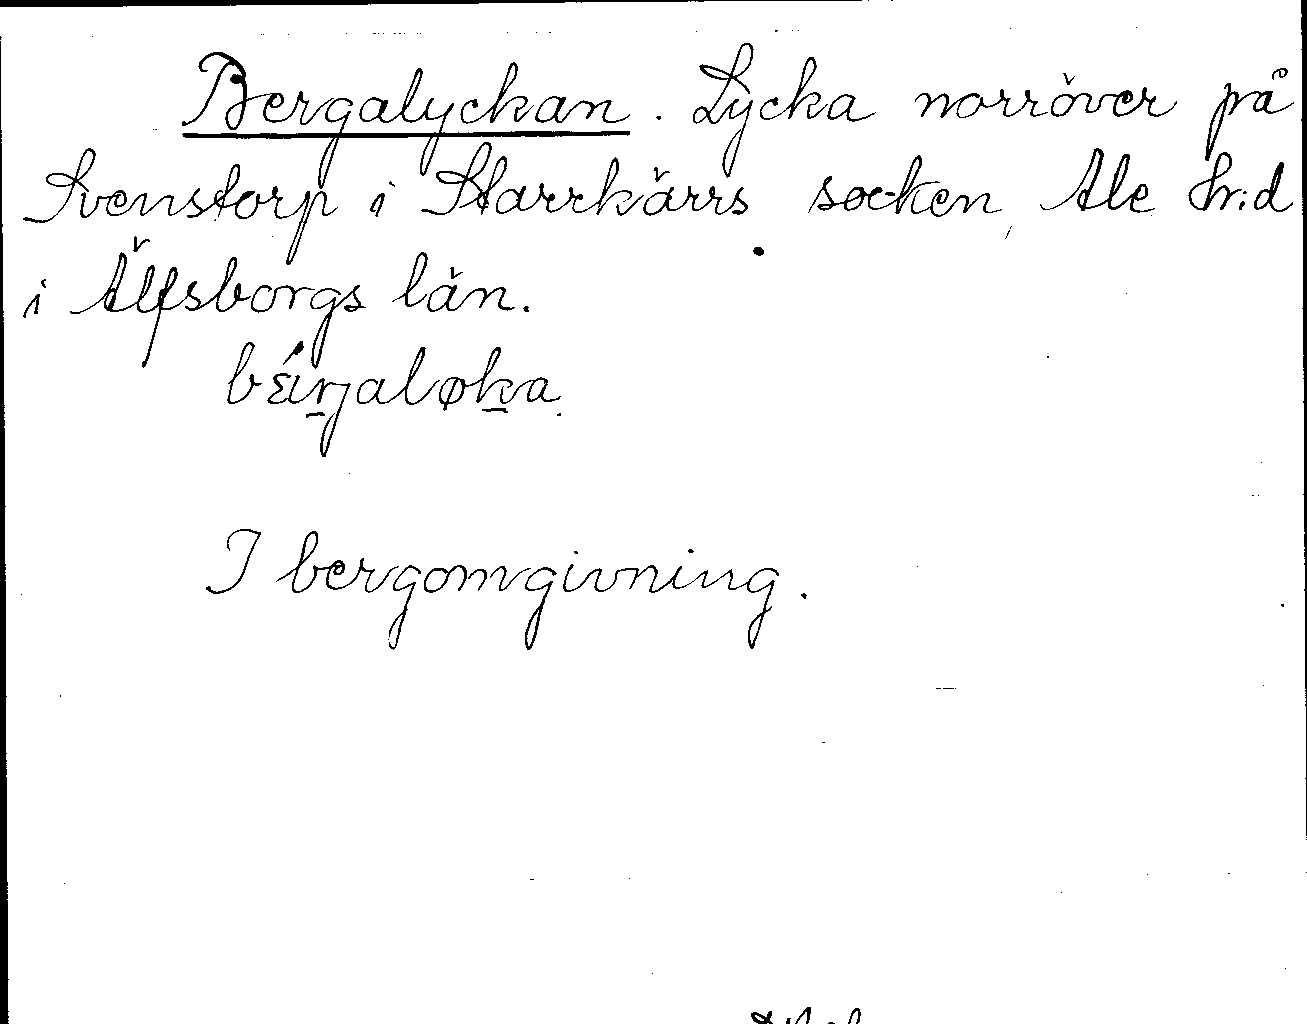 Bergalyckan. Lycka norröver på
Svenstorp i Starrkärrs socken, Ale hr:d
i Älfsborgs län.
I bergomgivning.